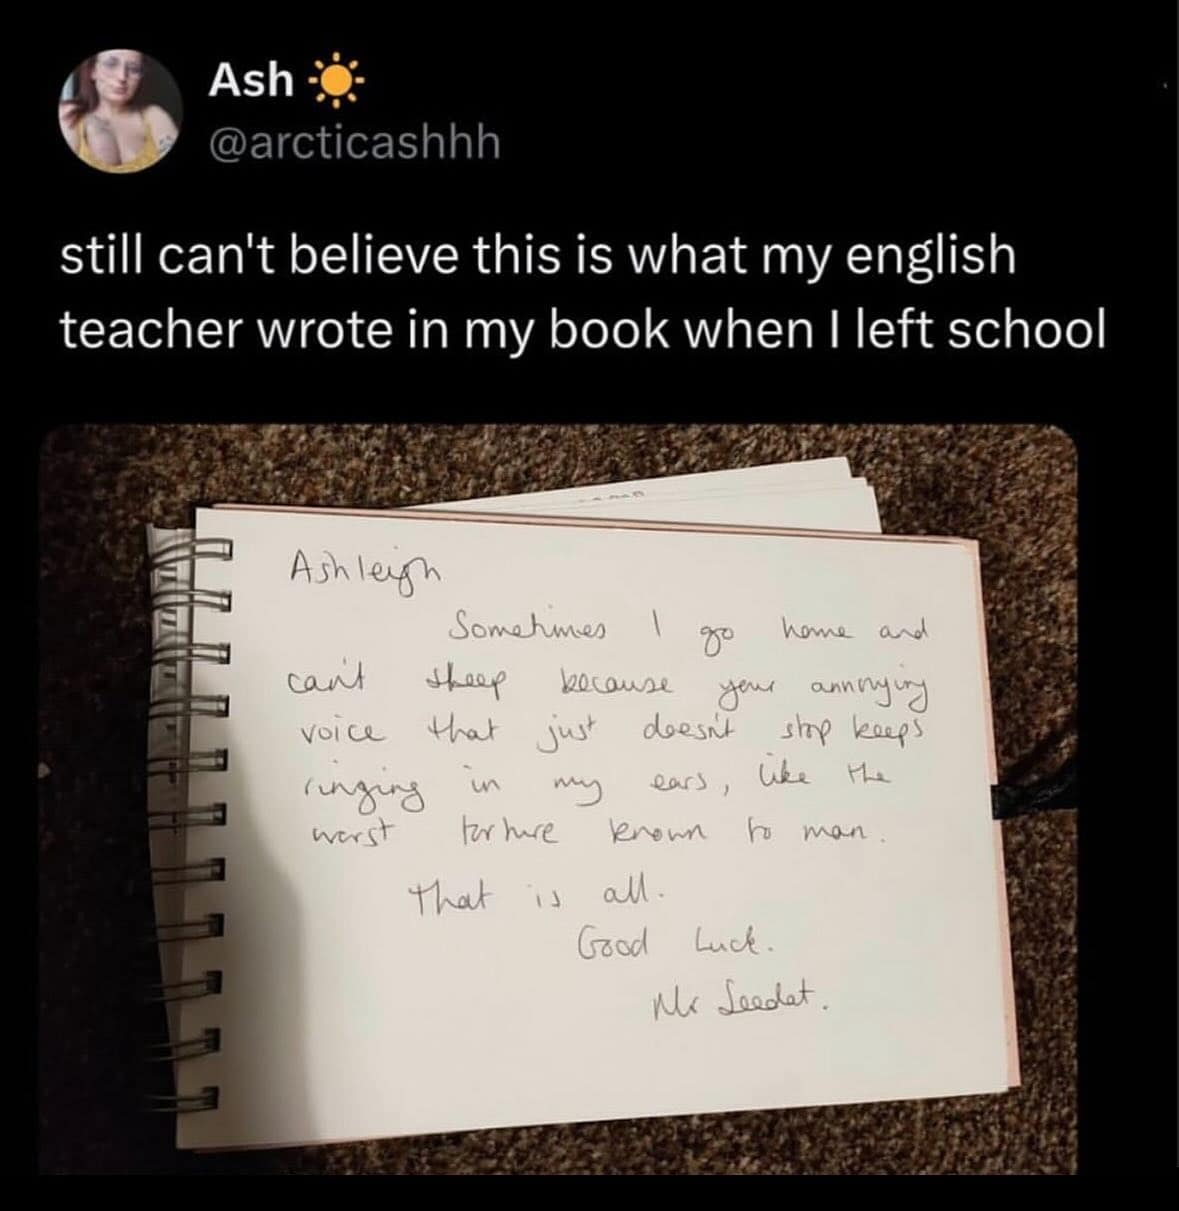 Ash ☀️
@arcticashhh
still can't believe this is what my english
teacher wrote in my book when I left school
Ashleigh
Sometimes I go home and
can't sleep because your annoying
voice that just doesn't stop keeps
ringing in my ears, like the
worst torture known to man.
That is all.
Good Luck.
Mr Seedat.